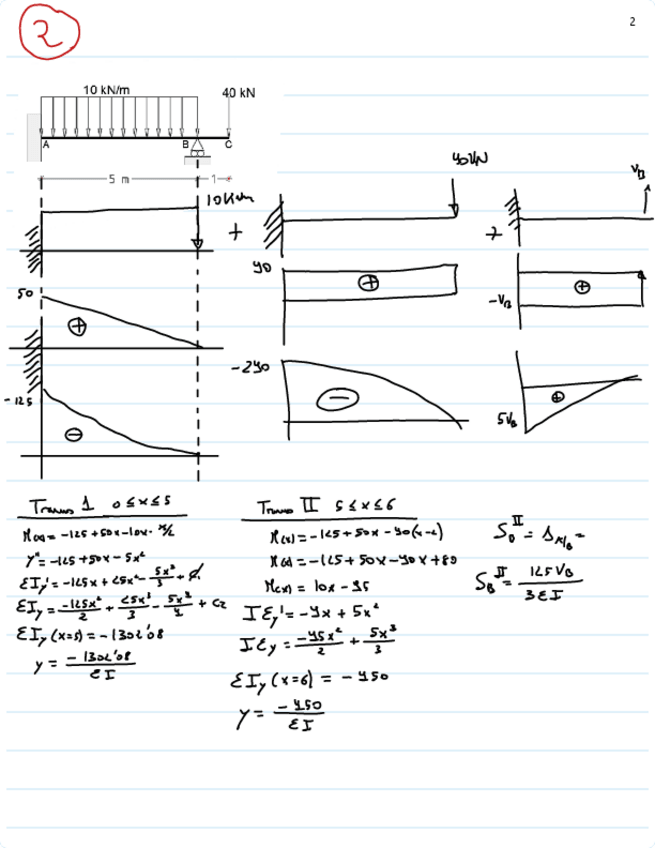 2
2
10 kN/m
40 kN
A
B
C
5 m
1
10 kN/m
40kN
V_B
+
+
40
+
-V_B
+
50
+
-240
-
5V_B
+
-125
-
Tramo 1 0 ≤ x ≤ 5
M(x) = -125 + 50x - 10x · x/2
y'' = -125 + 50x - 5x²
EIy' = -125x + 25x² - 5x³/3 + C₁
EIy = -125x²/2 + 25x³/3 - 5x⁴/4 + C2
EIy (x=5) = -1302'08
y = -1302'08/EI
Tramo II 5 ≤ x ≤ 6
M(x) = -125 + 50x - 40(x-2)
M(x) = -125 + 50x - 40x + 80
M(x) = 10x - 45
IEy' = -4x + 5x²
IEy = -45x²/2 + 5x³/3
EIy (x=6) = -450
y = -450/EI
S_B^II = Δ_A/B =
S_B^II = 125V_B/3EI